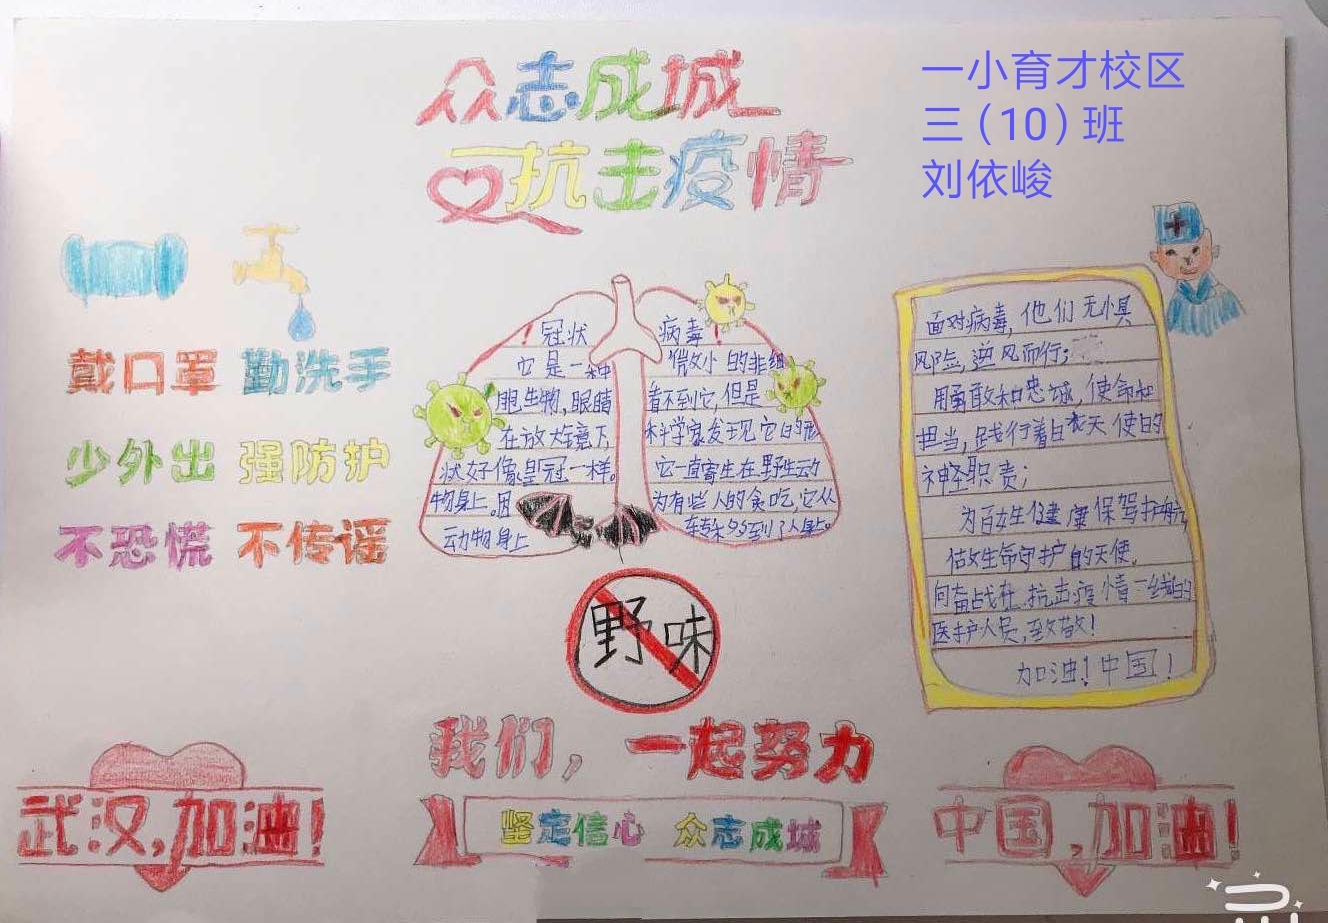 众志成城
抗击疫情
一小育才校区
三（10）班
刘依峻
戴口罩 勤洗手
少外出 强防护
不恐慌 不传谣
冠状病毒！
它是一种微小的非细
胞生物，眼睛看不到它，但是
在放大镜下，科学家发现它的形
状好像皇冠一样。它一直寄生在野生动
物身上。因为有些人的贪吃，它从
动物身上转移到了人身上。
野味
面对病毒，他们无惧
风险，逆风而行；
用勇敢和忠诚，使命和
担当，践行着白衣天使的
神圣职责；
为百姓生健康保驾护航
做生命守护的天使。
向奋战在抗击疫情一线的
医护人员，致敬！
加油！中国！
我们，一起努力
坚定信心 众志成城
武汉，加油！
中国，加油！